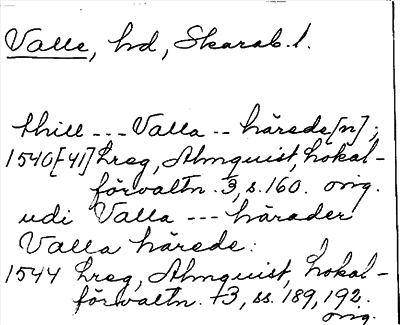 Valle, hd, Skarab. l.
thill --- Valla -- härede[n];
1540[-41] hreg, Almquist, Lokal-
förvaltn. 3, s. 160. orig.
udi Valla --- härader
Valla härede:
1544 hreg, Almquist, Lokal-
förvaltn. 3, ss. 189, 192.
orig.